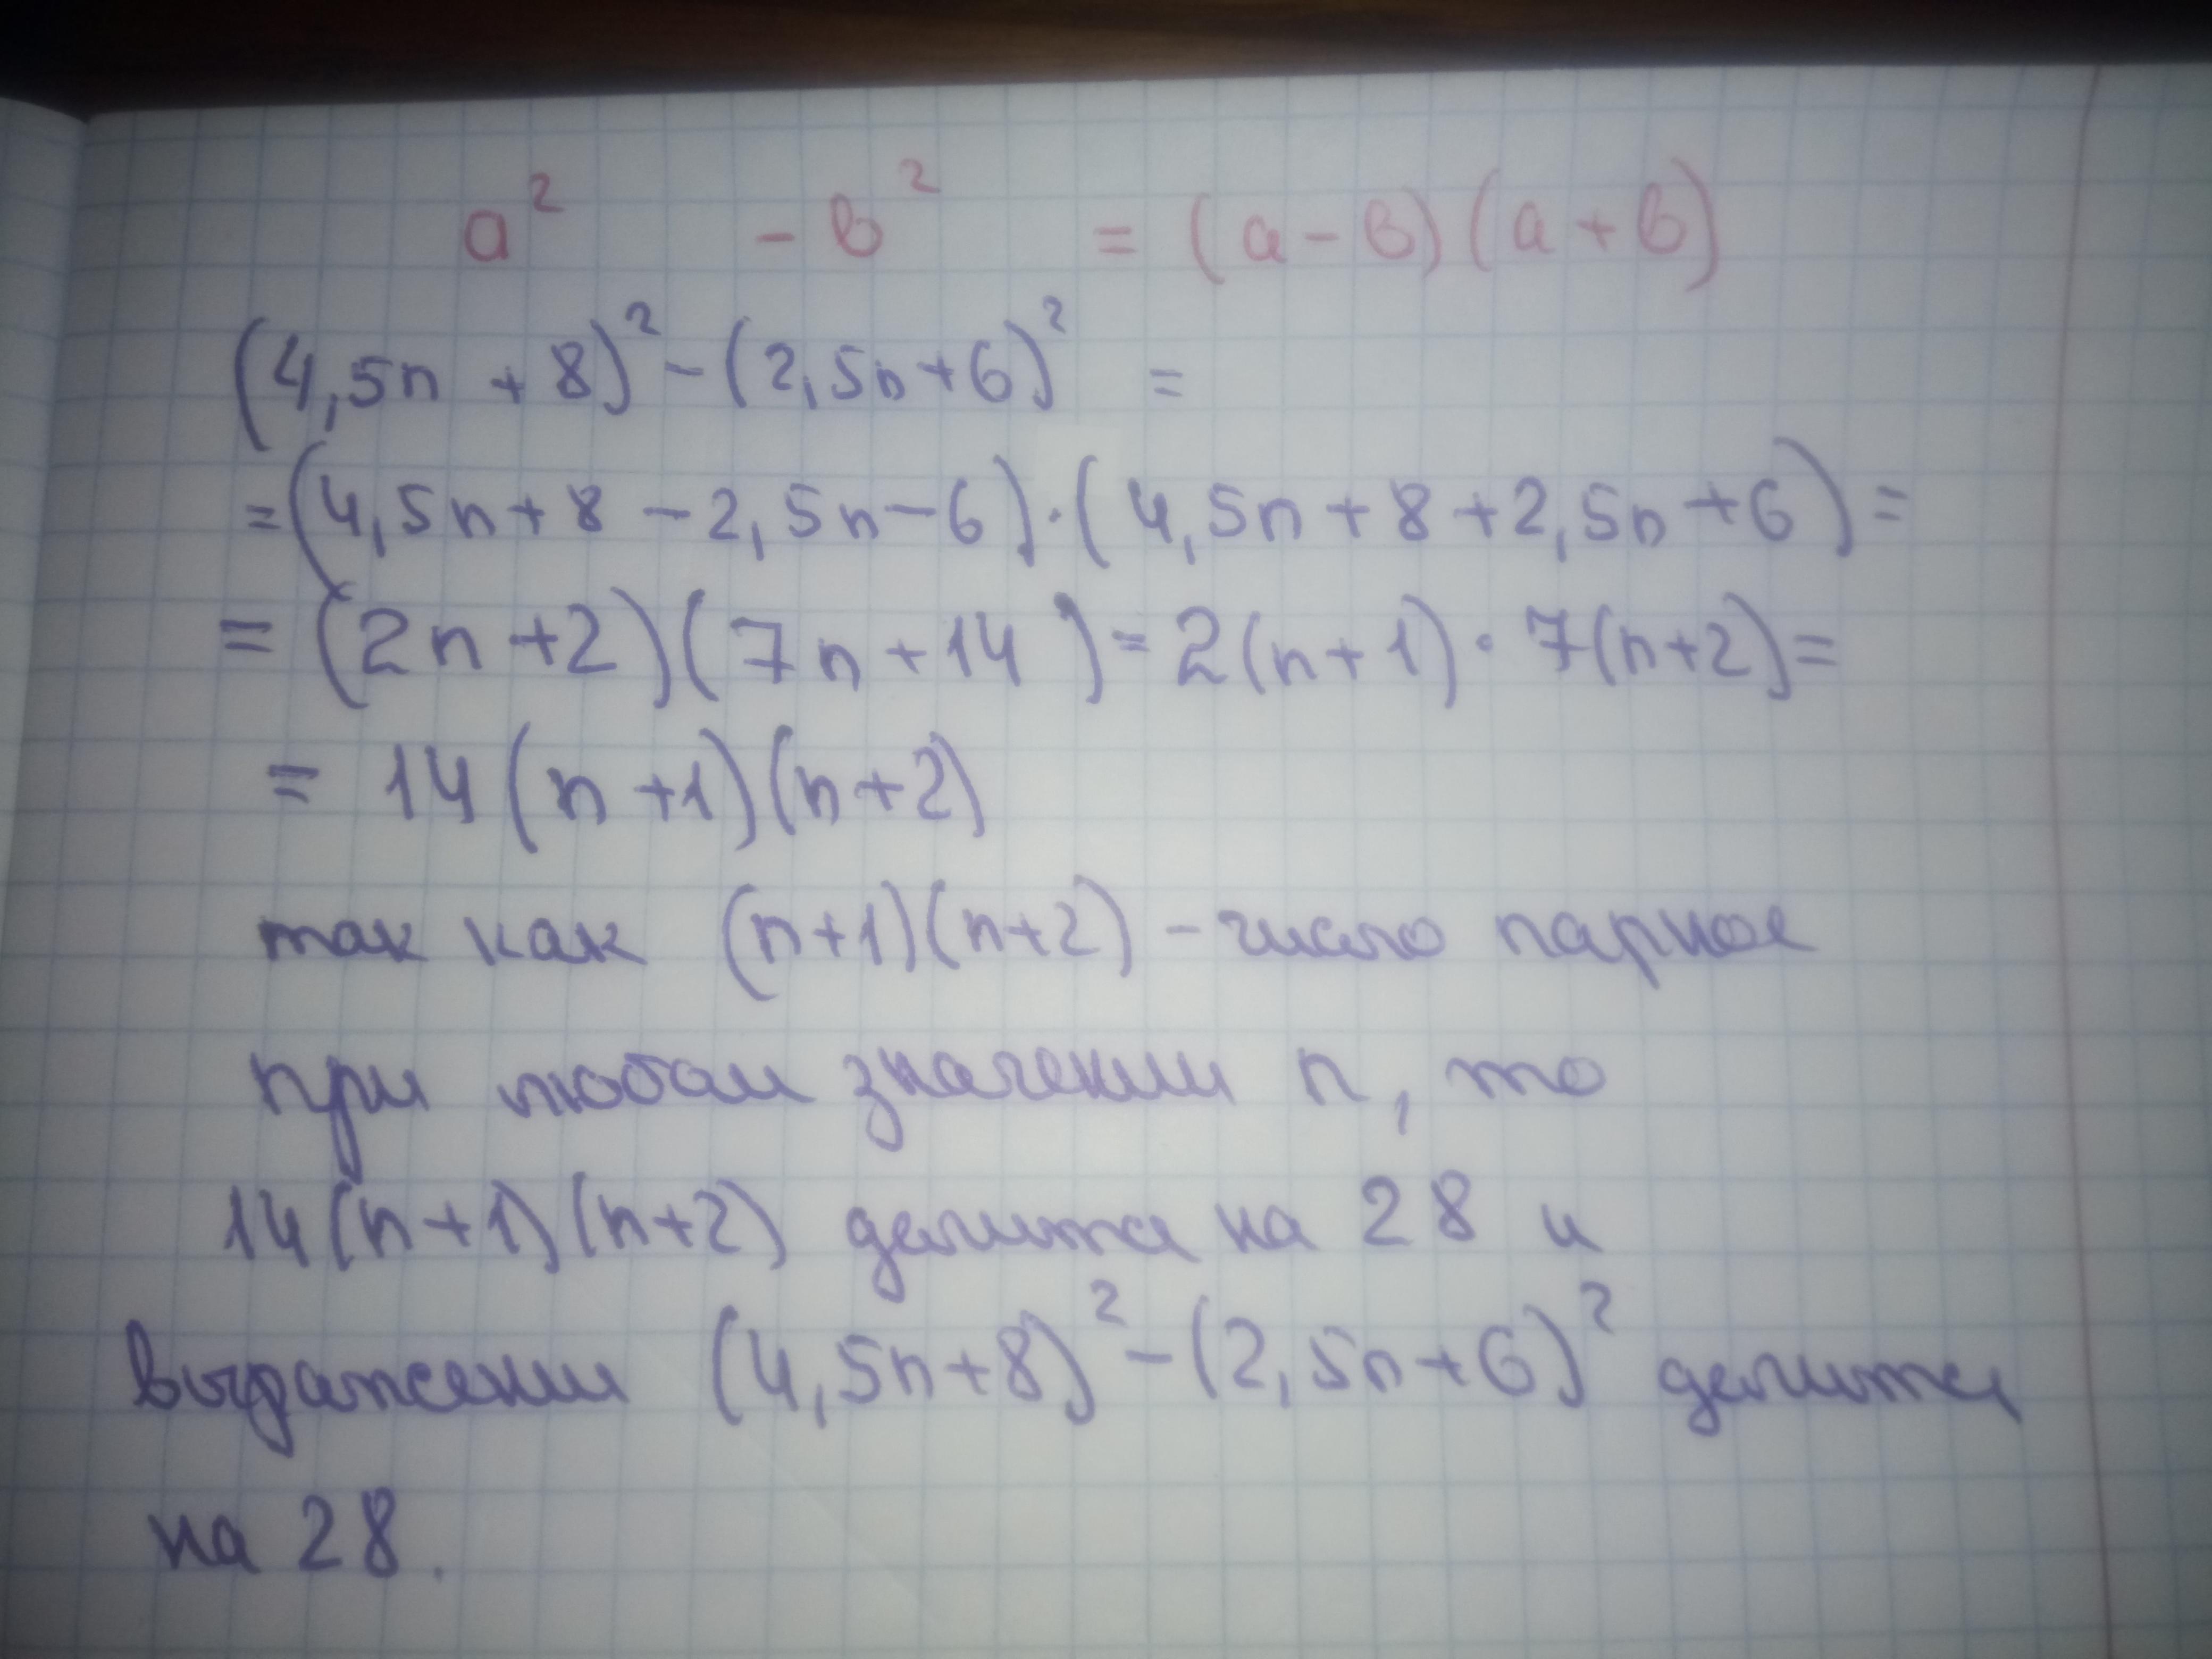 a² - в² = (a - в)(a + в)
(4,5n + 8)² - (2,5n + 6)² =
= (4,5n + 8 - 2,5n - 6) · (4,5n + 8 + 2,5n + 6) =
= (2n + 2)(7n + 14) = 2(n + 1) · 7(n + 2) =
= 14(n + 1)(n + 2)
так как (n+1)(n+2) - число парное
при любом значении n, то
14(n+1)(n+2) делится на 28 и
выражении (4,5n+8)² - (2,5n+6)² делится
на 28.